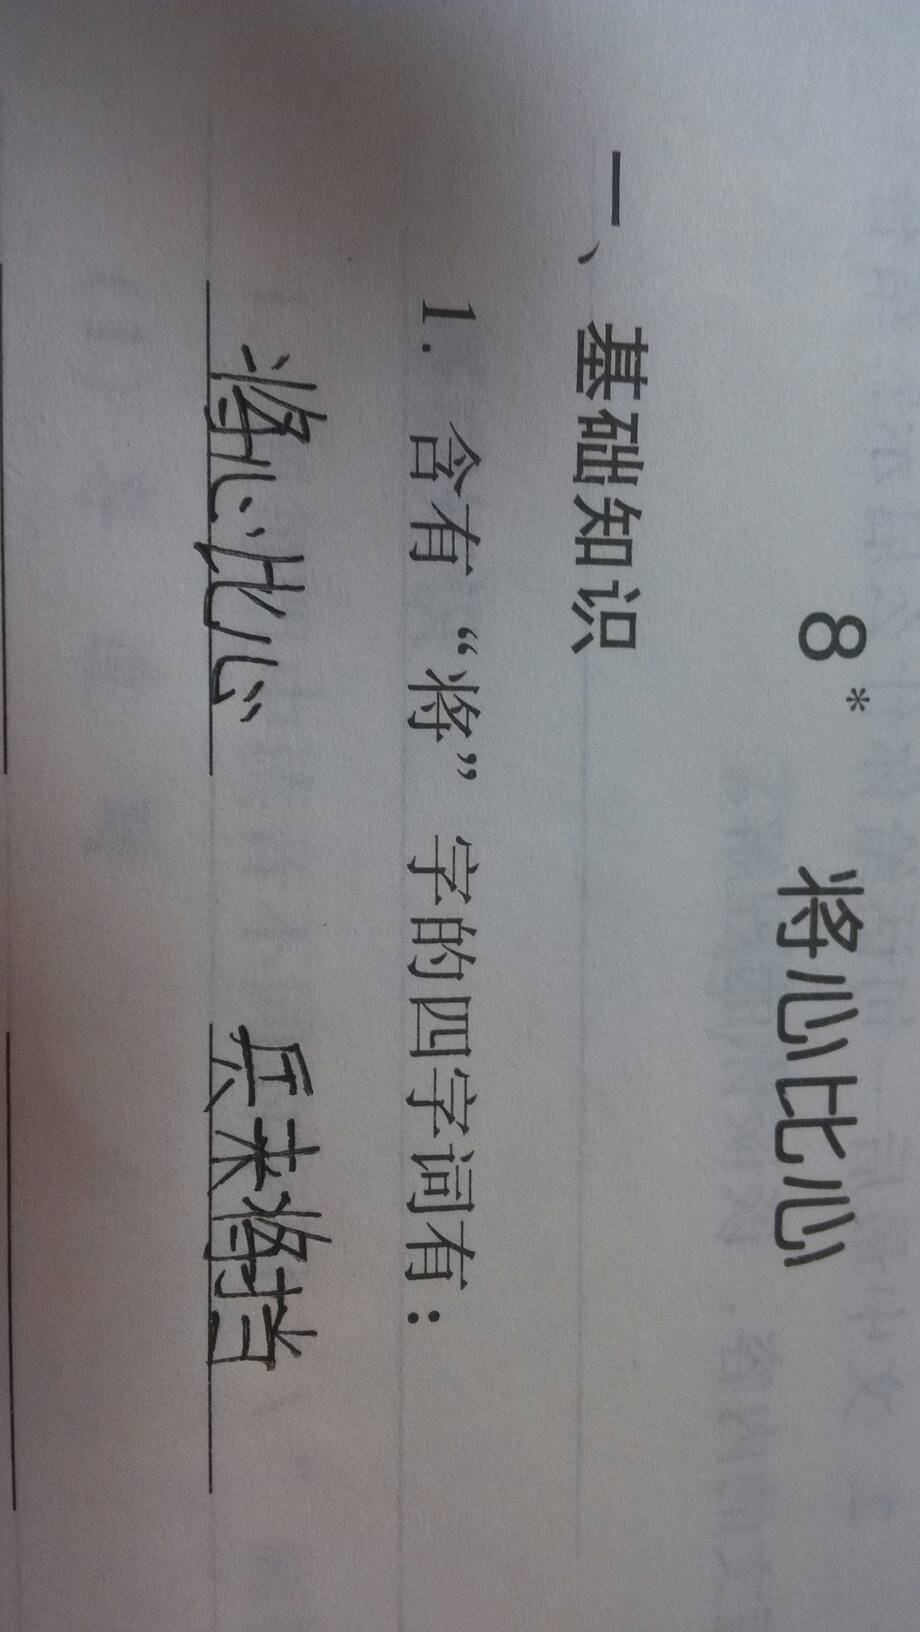 8* 将心比心
一、基础知识
1. 含有“将”字的四字词有：
将心比心 兵来将挡